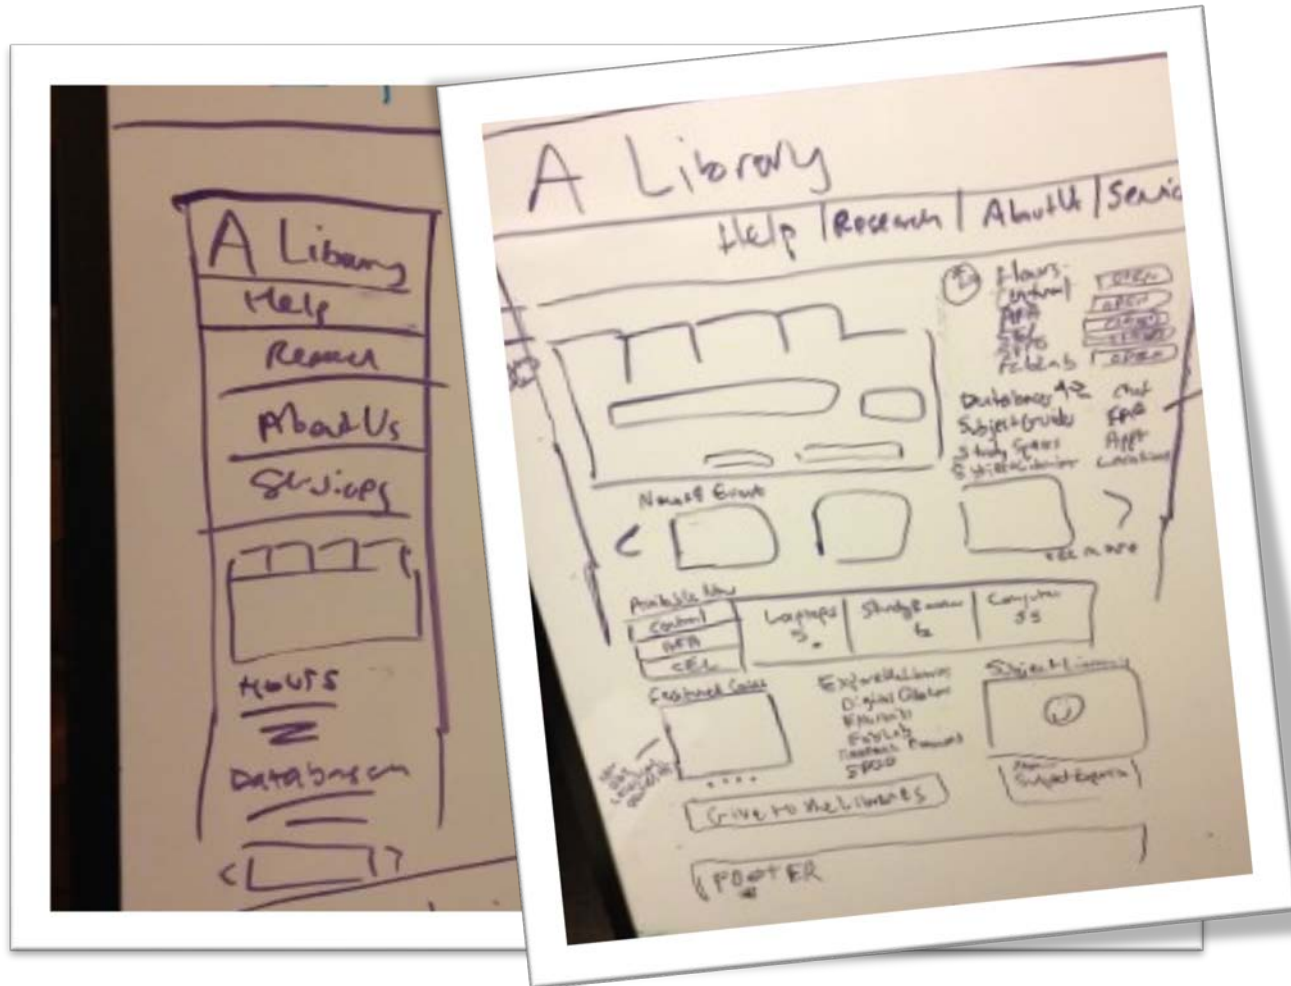 A Library
Help
Research
About Us
Services
Hours
Databases
A Library
Help | Research | About Us | Servic
Hours
Central OPEN
AFA OPEN
SEL
SPC
FabLab OPEN
Databases A-Z Chat
Subject Guides FAQ
Study Spaces Appt
Subject Librarian Locations
News & Event
< >
Available Now
Central
AFA
SEL
Laptops
5
Study Rooms
6
Computer
55
Featured
Explore the Libraries
Digital
FabLab
SPCO
Subject Librarian
Subject Experts
Give to the Libraries
FOOTER